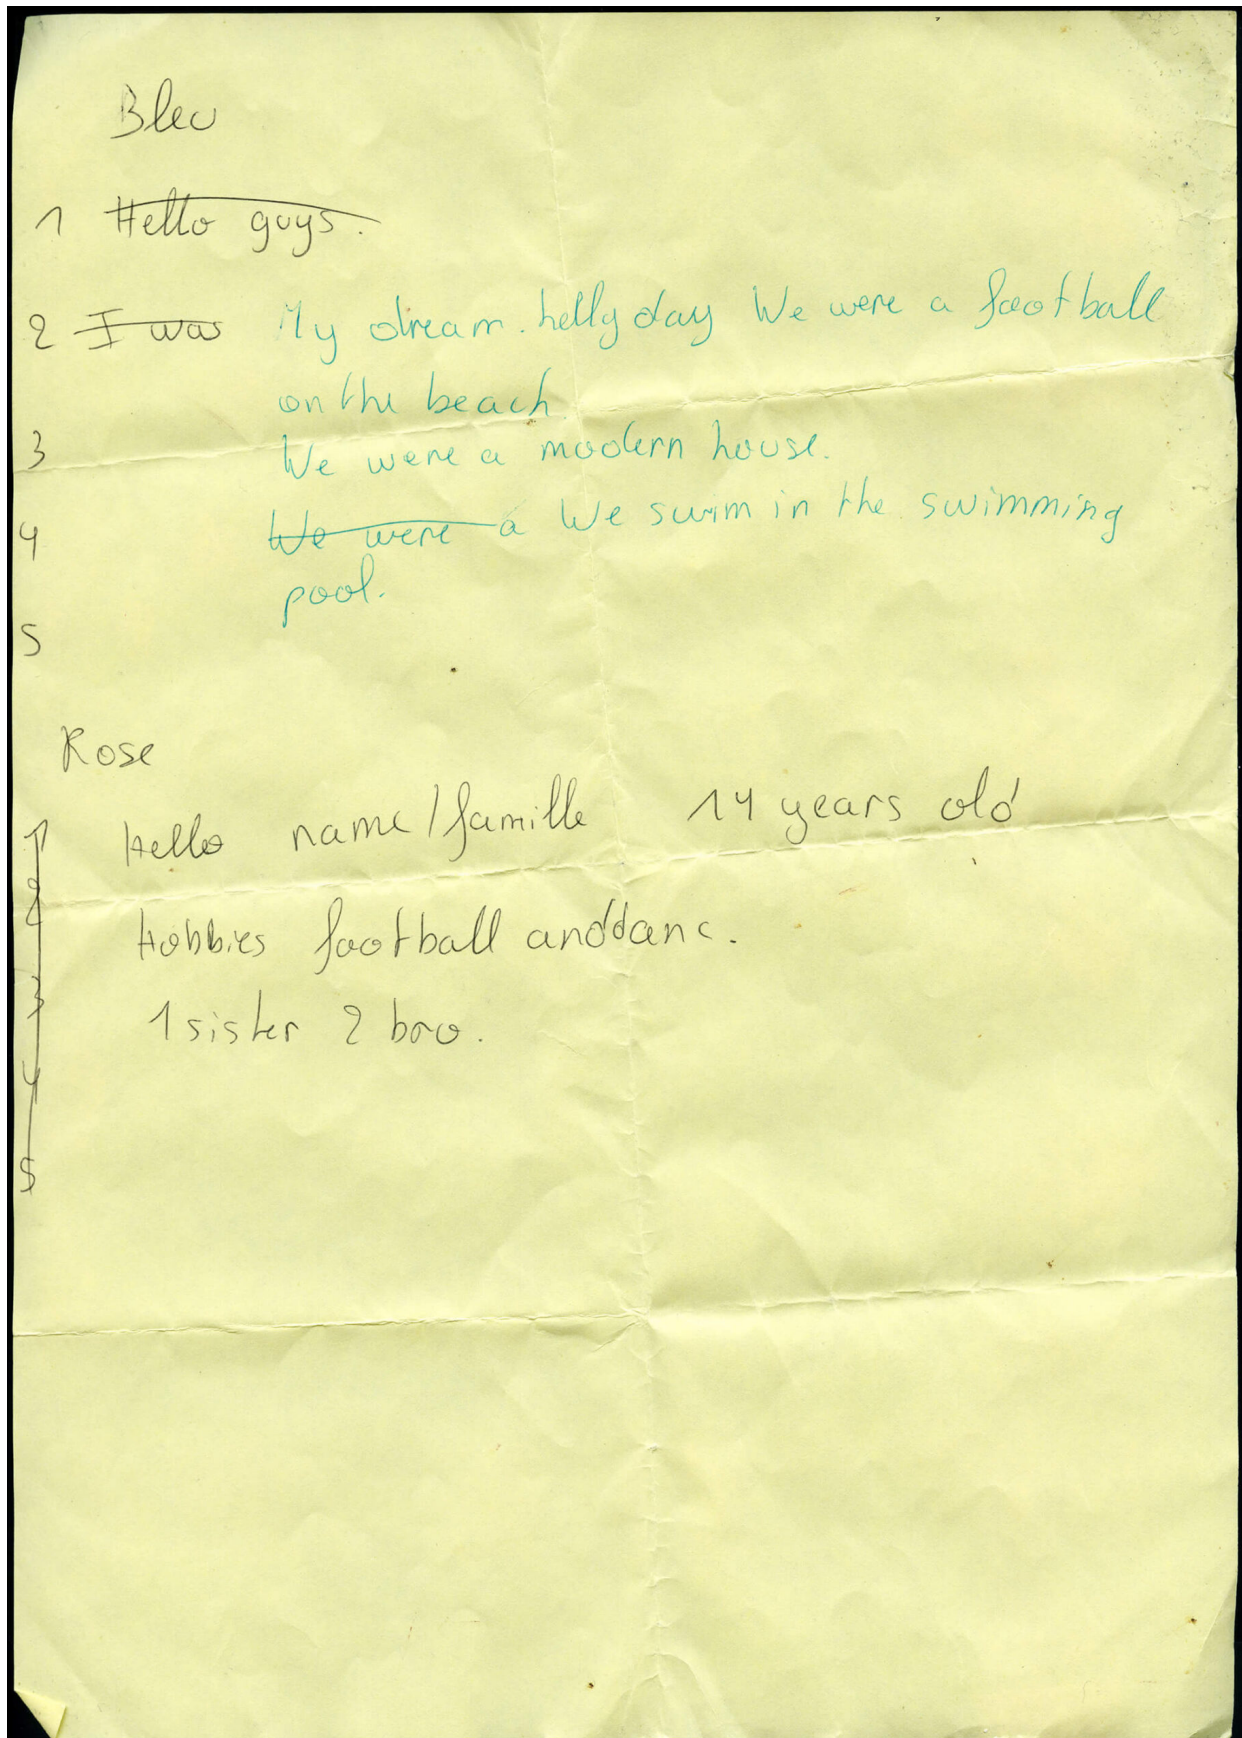 Bleu
1 Hello guys.
2 I was My dream. hellyday We were a football
on the beach
3 We were a modern house.
4 We were a We swim in the swimming
pool.
5
Rose
1 Hello name/famille 14 years old
2 Hobbies football and danc.
3 1 sister 2 bro.
4
5